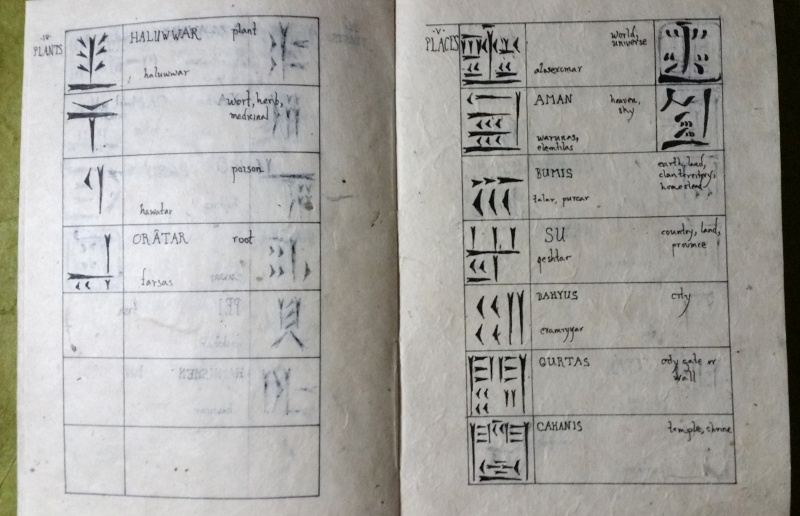 ·IV·
PLANTS
HALUWWAR plant
haluwwar
wort, herb,
medicinal
poison
hawatar
ORÂTAR root
farsas
·V·
PLACES
world,
universe
AMAN heaven,
sky
warunas,
elentilas
BUMIS earth, land,
clan territory,
homestead
talar, purcar
SU country, land,
province
qeshtar
DAHYUS city
eramyyar
QURTAS city gate or
wall
CAHANIS temple, shrine